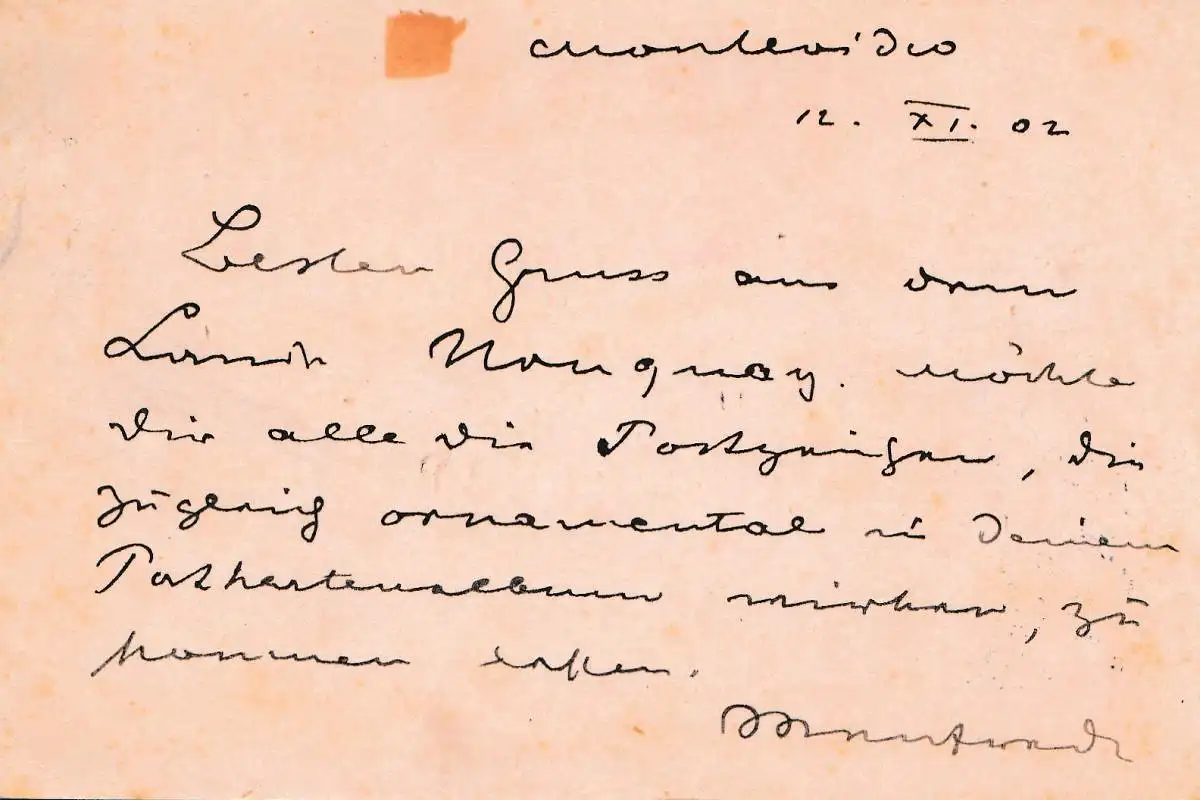 Montevideo
12. XI. 02
Besten Gruss aus dem
Lande Urouguay. möchte
dir alle die Postzeugen, die
zugleich ornamental in Deinem
Postkartenalbum wirken, zu
kommen lassen.